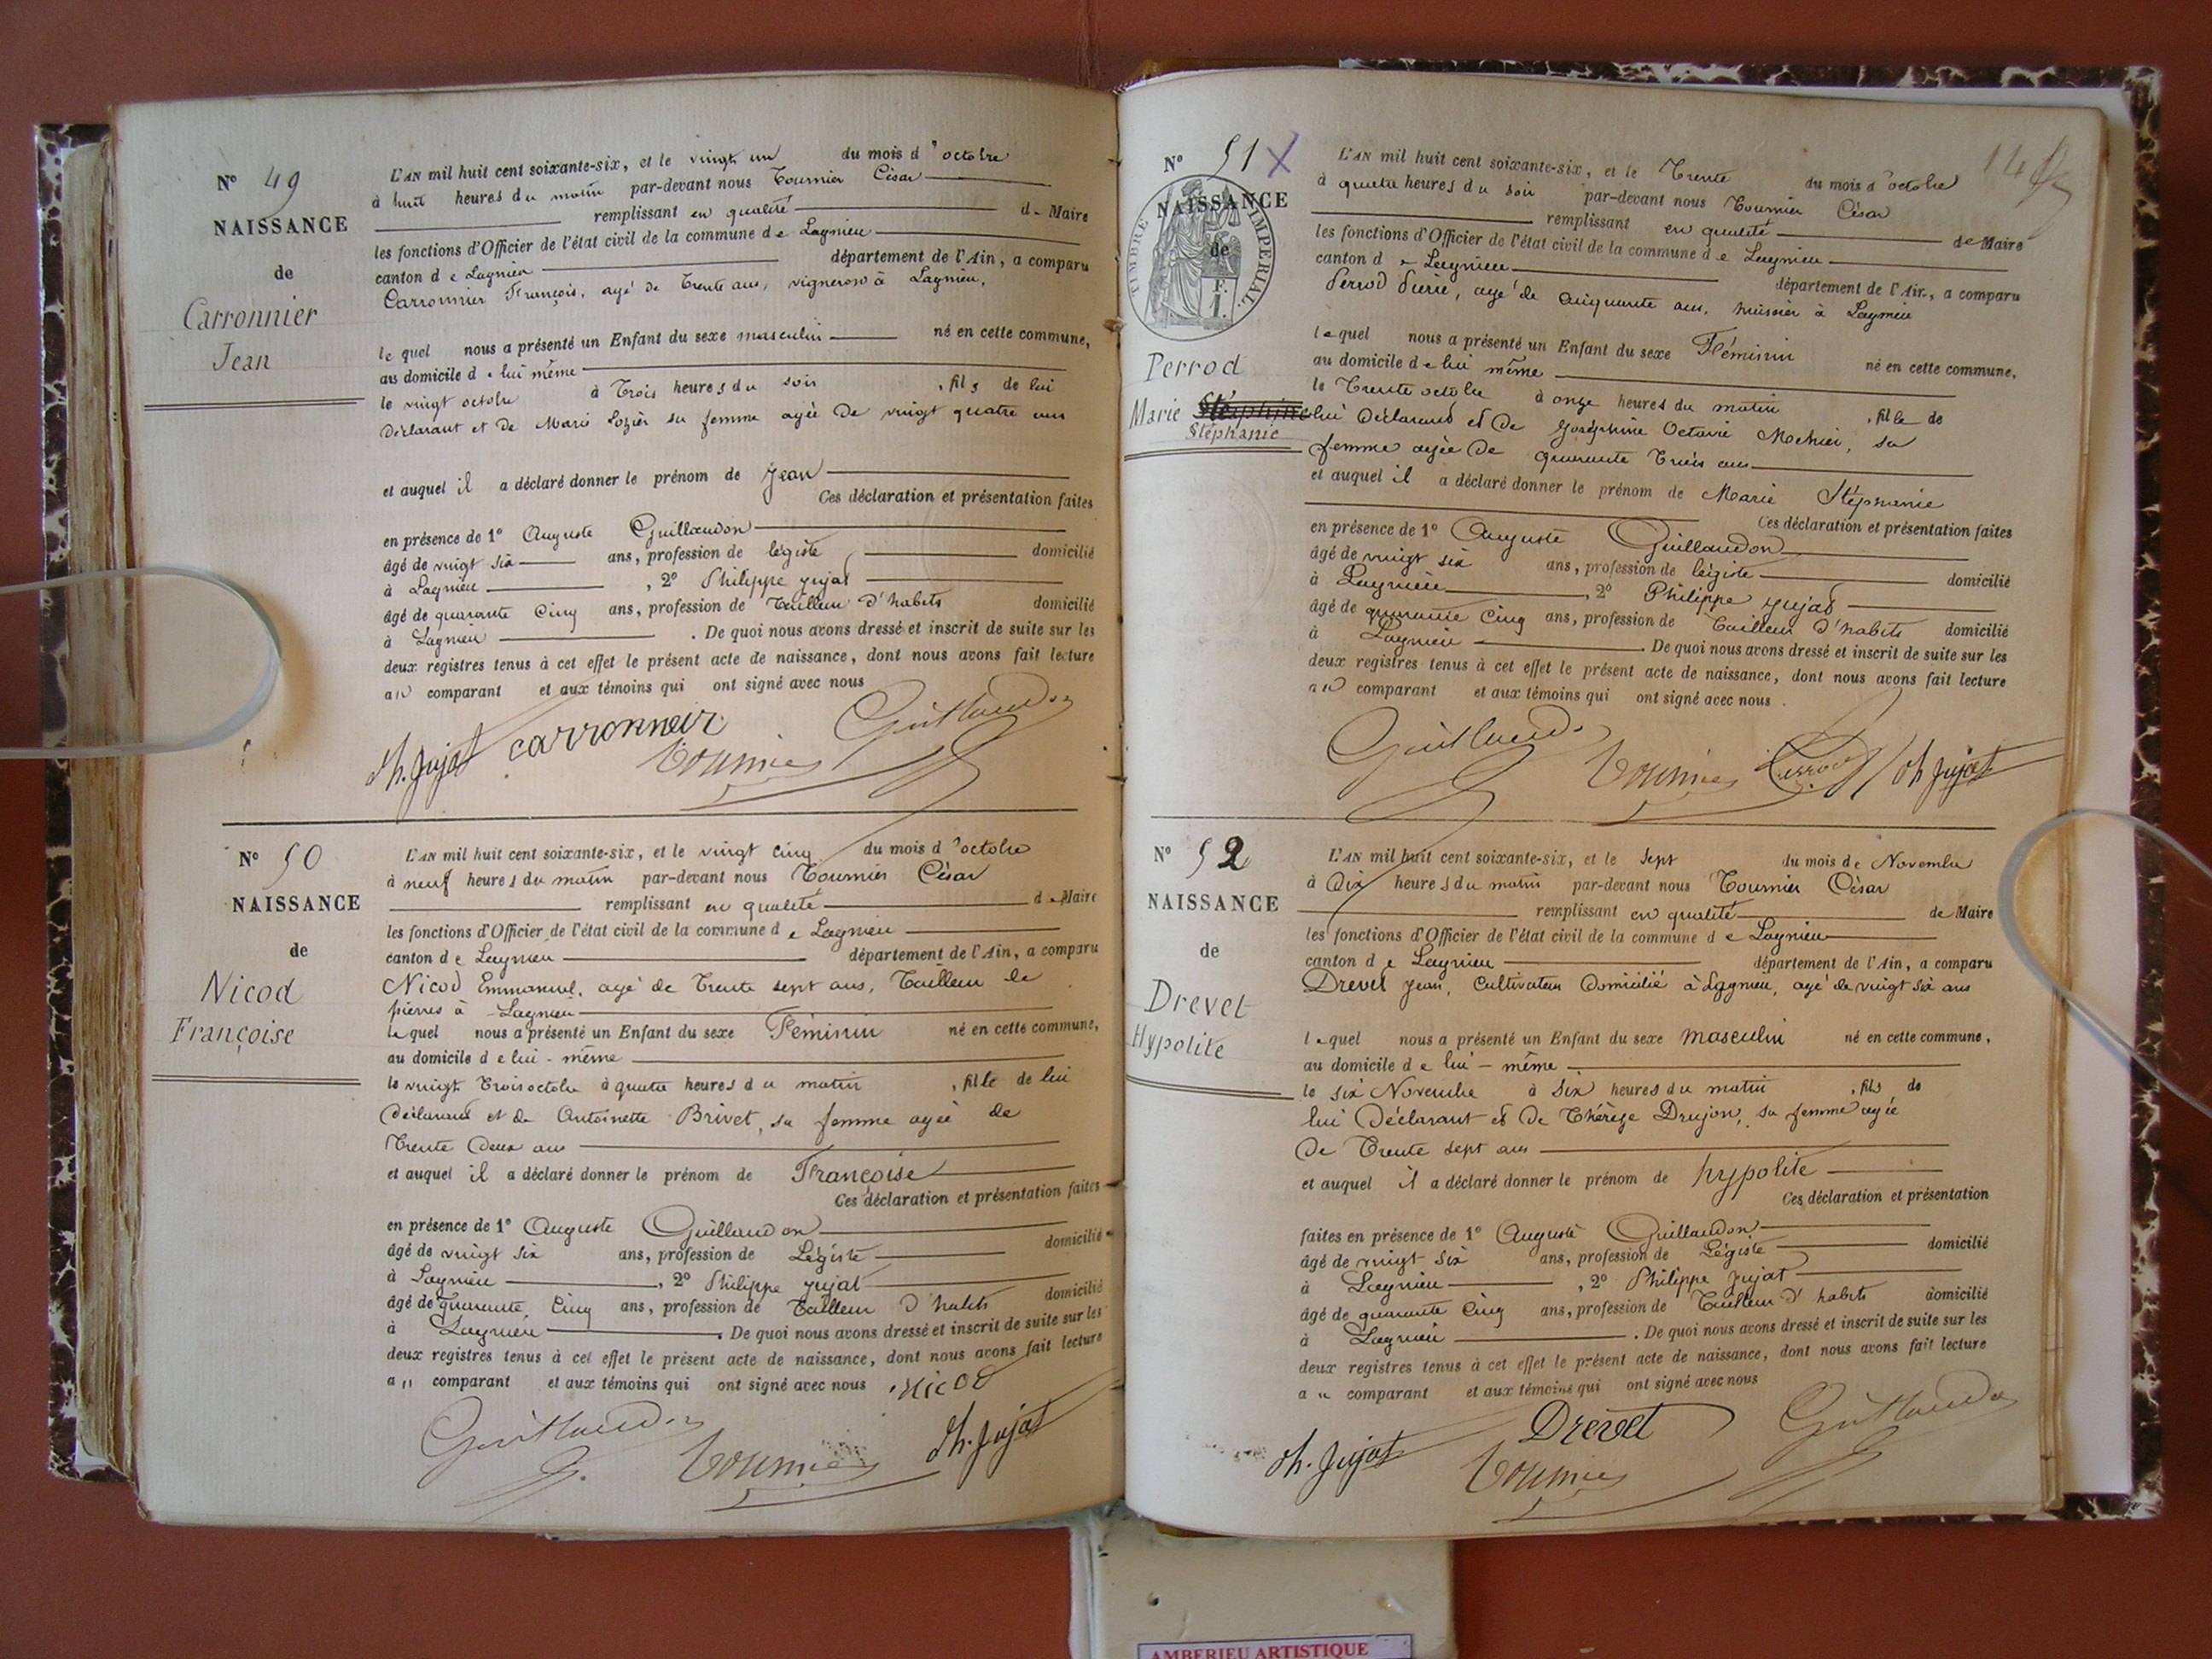 N° 49
NAISSANCE
de
Carronnier
Jean
L'AN mil huit cent soixante-six, et le vingt un du mois d'octobre
à huit heures du matin par-devant nous Tournier César
remplissant en qualité de Maire
les fonctions d'Officier de l'état civil de la commune de Lagnieu
canton de Lagnieu département de l'Ain, a comparu
Carronnier François, agé de Trente ans, vigneron à Lagnieu,
lequel nous a présenté un Enfant du sexe masculin né en cette commune,
au domicile de lui même
le vingt octobre à Trois heures du soir, fils de lui
Déclarant et de Marie sa femme agée de vingt quatre ans
et auquel il a déclaré donner le prénom de Jean
Ces déclaration et présentation faites
en présence de 1° Auguste Guillaudon
âgé de vingt six ans, profession de légiste domicilié
à Lagnieu, 2° Philippe Jujat
âgé de quarante Cinq ans, profession de Tailleur d'habits domicilié
à Lagnieu. De quoi nous avons dressé et inscrit de suite sur les
deux registres tenus à cet effet le présent acte de naissance, dont nous avons fait lecture
au comparant et aux témoins qui ont signé avec nous
Ph. Jujat carronneir Tournier Guillaudon
N° 50
NAISSANCE
de
Nicod
Françoise
L'AN mil huit cent soixante-six, et le vingt cinq du mois d'octobre
à neuf heures du matin par-devant nous Tournier César
remplissant en qualité de Maire
les fonctions d'Officier de l'état civil de la commune de Lagnieu
canton de Lagnieu département de l'Ain, a comparu
Nicod Emmanuel, agé de Trente sept ans, Tailleur de
pierres à Lagnieu
lequel nous a présenté un Enfant du sexe Féminin né en cette commune,
au domicile de lui-même
le vingt Trois octobre à quatre heures du matin, fille de lui
Déclarant et de Antoinette Brivet, sa femme agée de
Trente Deux ans
et auquel il a déclaré donner le prénom de Françoise
Ces déclaration et présentation faites
en présence de 1° Auguste Guillaudon
âgé de vingt six ans, profession de Légiste domicilié
à Lagnieu, 2° Philippe Jujat
âgé de Quarante Cinq ans, profession de Tailleur d'habits domicilié
à Lagnieu. De quoi nous avons dressé et inscrit de suite sur les
deux registres tenus à cet effet le présent acte de naissance, dont nous avons fait lecture
au comparant et aux témoins qui ont signé avec nous Nicod
Guillaudon Tournier Ph. Jujat
N° 51 X
TIMBRE IMPÉRIAL
NAISSANCE
de
1 F.
Perrod
Marie Stéphine
Stéphanie
L'AN mil huit cent soixante-six, et le Trente du mois d'octobre
à quatre heures du soir par-devant nous Tournier César
remplissant en qualité de Maire
les fonctions d'Officier de l'état civil de la commune de Lagnieu
canton de Lagnieu département de l'Ain, a comparu
Perrod Pierre, agé de Cinquante ans, huissier à Lagnieu
lequel nous a présenté un Enfant du sexe Féminin né en cette commune,
au domicile de lui même
le Trente octobre à onze heures du matin, fille de
lui Déclarant et de Joséphine Octavie Mehier, sa
femme agée de quarante Trois ans
et auquel il a déclaré donner le prénom de Marie Stéphanie
Ces déclaration et présentation faites
en présence de 1° Auguste Guillaudon
âgé de vingt six ans, profession de légiste domicilié
à Lagnieu, 2° Philippe Jujat
âgé de quarante Cinq ans, profession de Tailleur d'habits domicilié
à Lagnieu. De quoi nous avons dressé et inscrit de suite sur les
deux registres tenus à cet effet le présent acte de naissance, dont nous avons fait lecture
au comparant et aux témoins qui ont signé avec nous.
Guillaudon Tournier Perrod Ph Jujat
N° 52
NAISSANCE
de
Drevet
Hypolite
L'AN mil huit cent soixante-six, et le sept du mois de Novembre
à Dix heures du matin par-devant nous Tournier César
remplissant en qualité de Maire
les fonctions d'Officier de l'état civil de la commune de Lagnieu
canton de Lagnieu département de l'Ain, a comparu
Drevet Jean, Cultivateur Domicilié à Lagnieu, agé de vingt six ans
lequel nous a présenté un Enfant du sexe masculin né en cette commune,
au domicile de lui-même
le six Novembre à Six heures du matin, fils de
lui Déclarant et de Thérèze Drujon, sa femme agée
De Trente sept ans
et auquel il a déclaré donner le prénom de hypolite
Ces déclaration et présentation
faites en présence de 1° Auguste Guillaudon
âgé de vingt six ans, profession de Légiste domicilié
à Lagnieu, 2° Philippe Jujat
âgé de quarante Cinq ans, profession de Tailleur d'habits domicilié
à Lagnieu. De quoi nous avons dressé et inscrit de suite sur les
deux registres tenus à cet effet le présent acte de naissance, dont nous avons fait lecture
au comparant et aux témoins qui ont signé avec nous
Ph. Jujat Drevet Tournier Guillaudon
AMBERIEU ARTISTIQUE